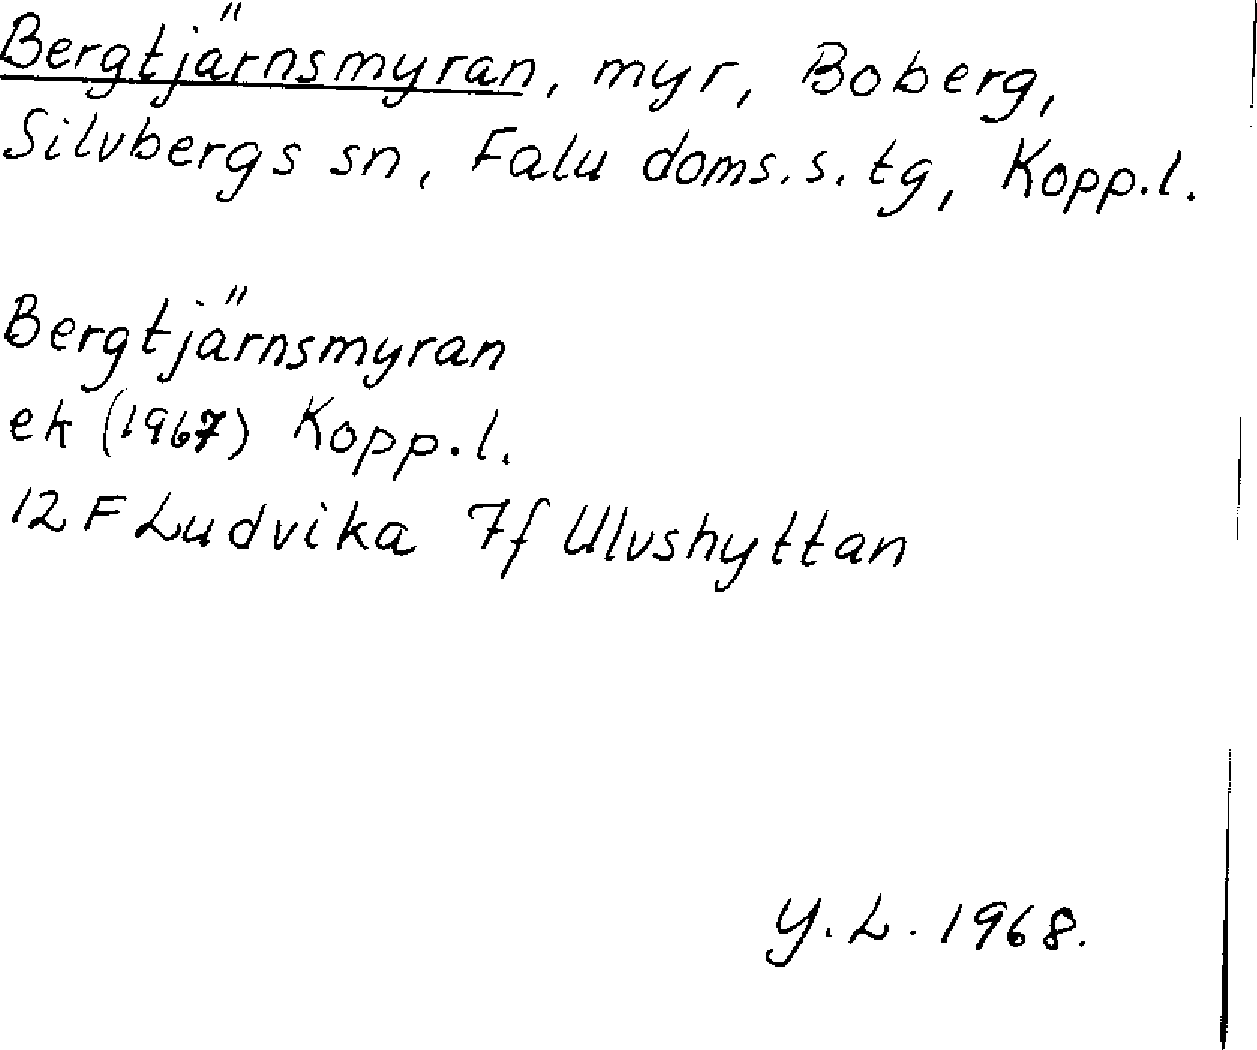 Bergtjärnsmyran, myr, Boberg,
Silvbergs sn, Falu doms.s.tg, Kopp.l.
Bergtjärnsmyran
ek (1967) Kopp.l.
12F Ludvika 7f Ulvshyttan
Y.L. 1968.